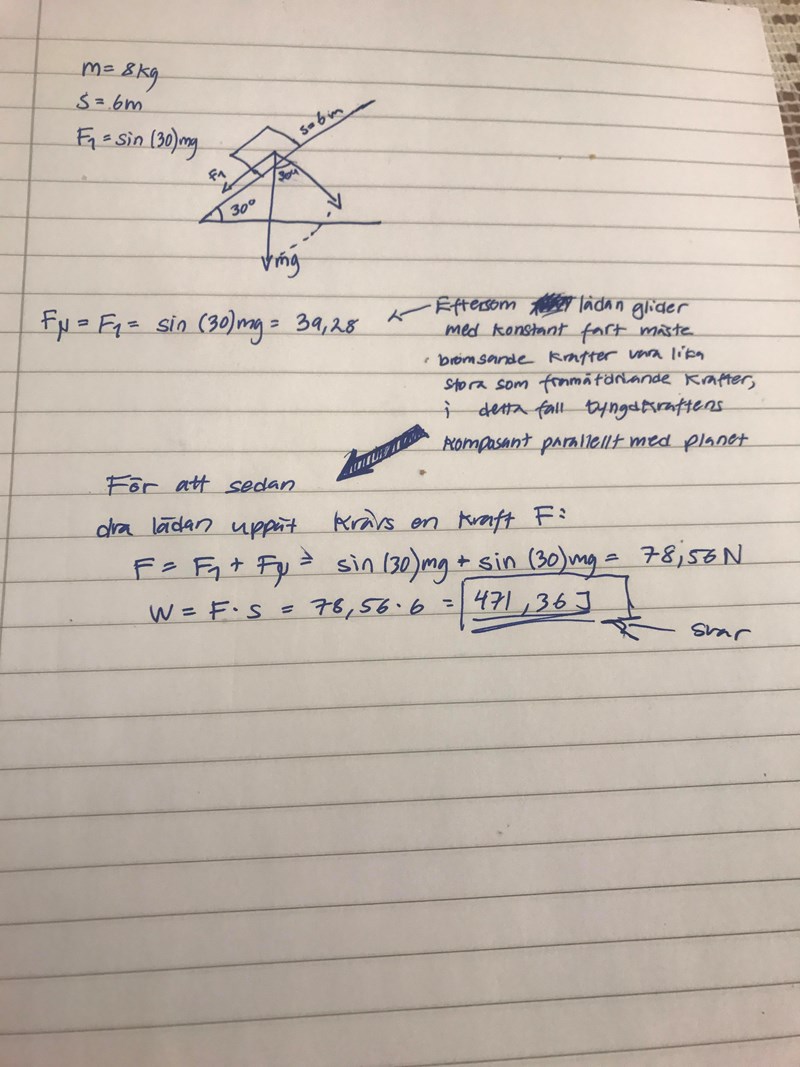 m = 8kg
S = 6m
F₁ = sin (30)mg
s=6m
F₁
30°
30°
mg
Fμ = F₁ = sin (30)mg = 39,28
Eftersom lådan glider
med konstant fart måste
bromsande krafter vara lika
stora som framåtdrivande krafter,
i detta fall tyngdkraftens
komposant parallellt med planet
För att sedan
dra lådan uppåt krävs en kraft F:
F = F₁ + Fμ = sin(30)mg + sin (30)mg = 78,56N
W = F · s = 78,56 · 6 = 471,36J
svar